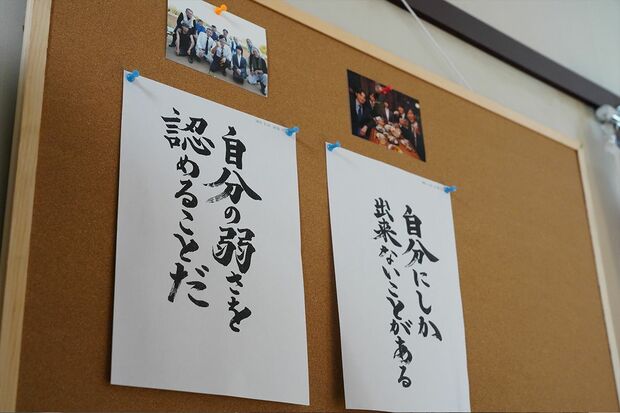 自分の弱さを
認めることだ
自分にしか
出来ないことがある